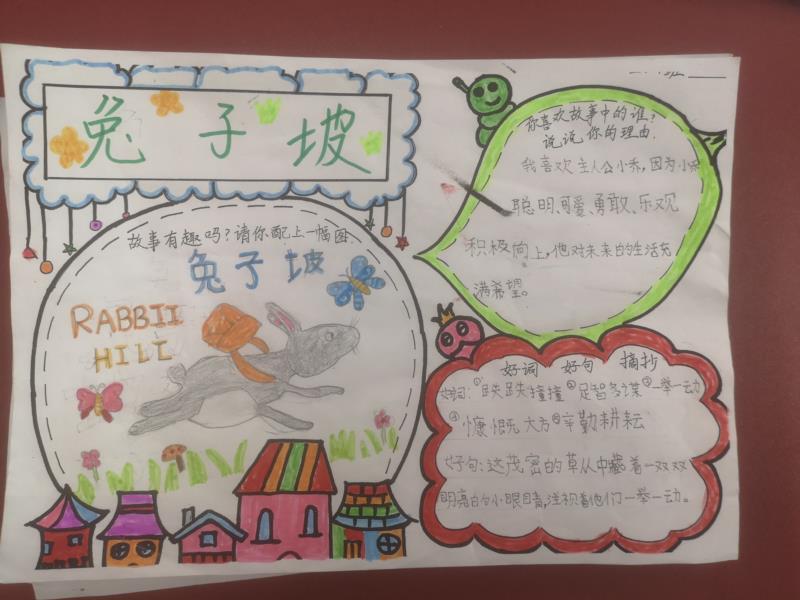 兔子坡
故事有趣吗?请你配上一幅图
兔子坡
RABBII
HILI
班
你喜欢故事中的谁?
说说你的理由.
我喜欢主人公小乔,因为小乔
聪明、可爱、勇敢、乐观
积极向上,他对未来的生活充
满希望。
好词 好句 摘抄
好词:①跌跌撞撞②足智多谋③一举一动
④慷慨大方⑤辛勤耕耘
好句:这茂密的草丛中藏着一双双
明亮的小眼睛,注视着他们一举一动。